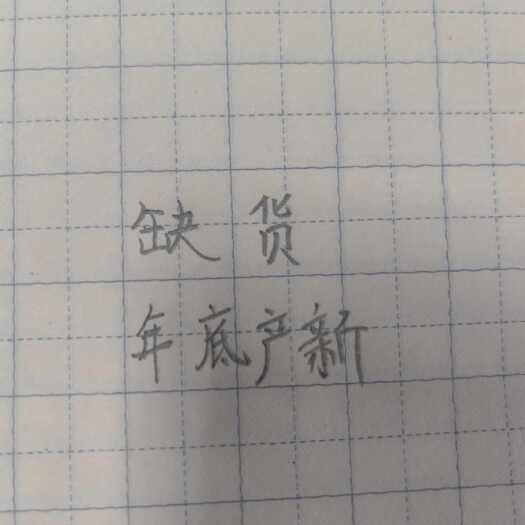 缺货
年底产新